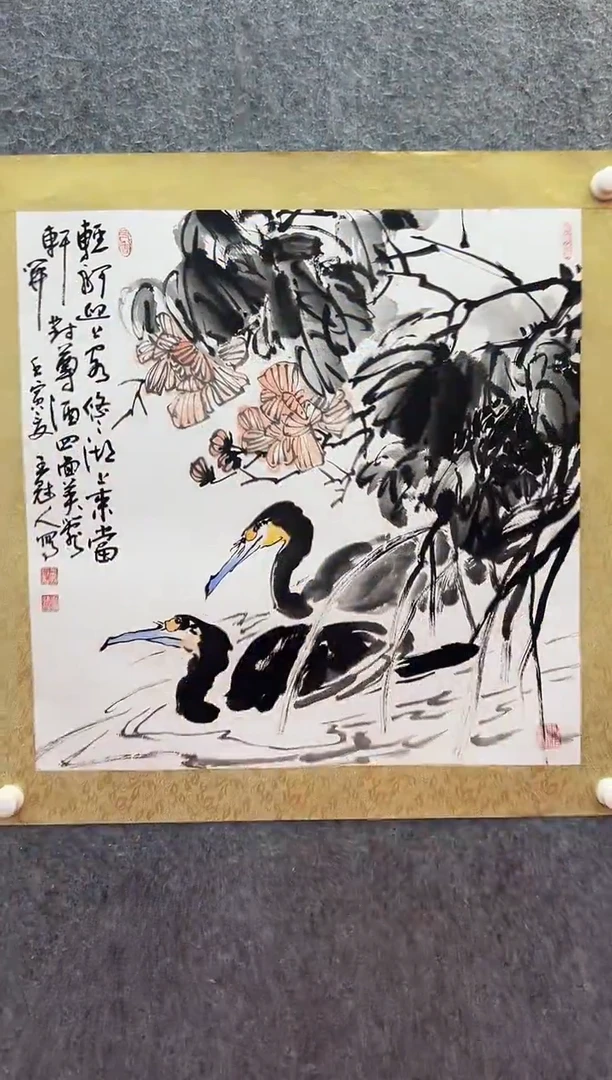 輕舸迎上客悠悠湖上來當
軒對尊酒四面芙蓉
開壬寅夏王人寫